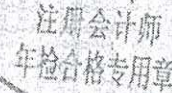 注册会计师
年检合格专用章